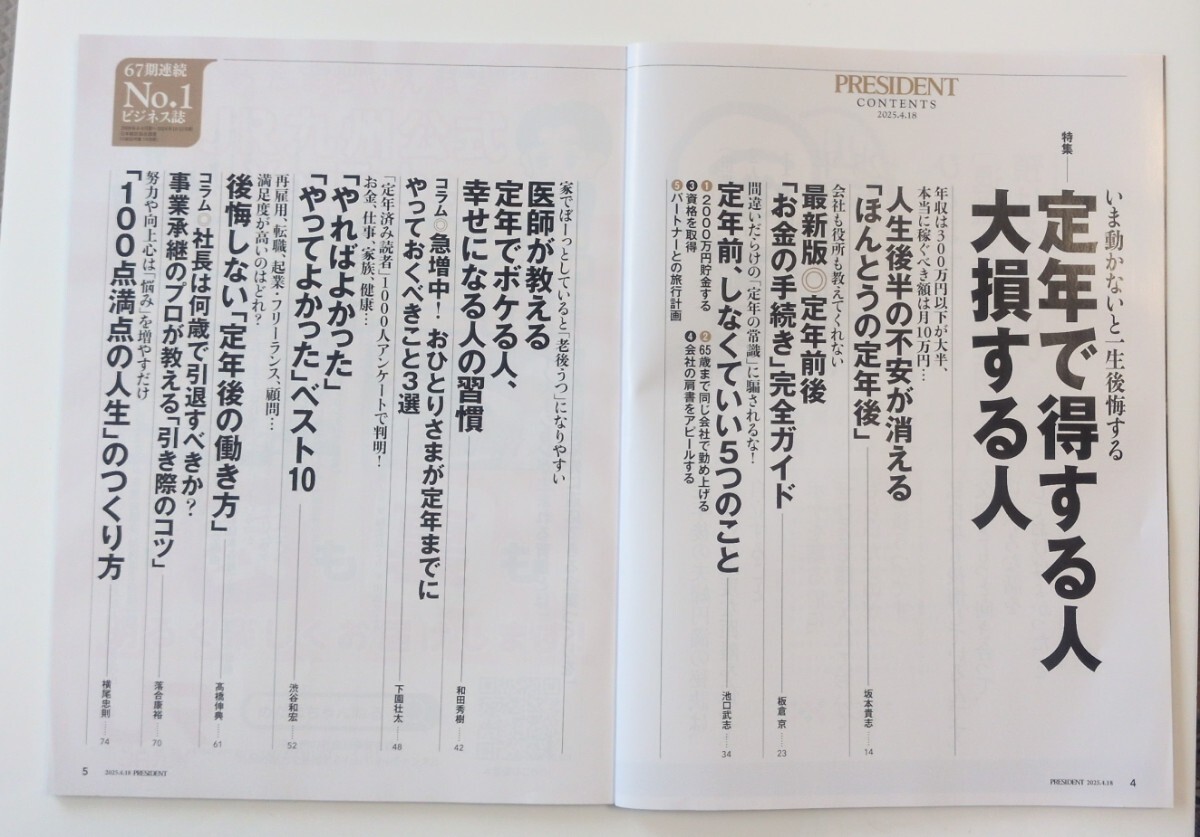 PRESIDENT
CONTENTS
2025.4.18
特集
いま動かないと一生後悔する
定年で得する人
大損する人
年収は300万円以下が大半、
本当に稼ぐべき額は月10万円…
人生後半の不安が消える
「ほんとうの定年後」
坂本貴志 …… 14
会社も役所も教えてくれない
最新版◎定年前後
「お金の手続き」完全ガイド
板倉 京 …… 23
間違いだらけの「定年の常識」に騙されるな!
定年前、しなくていい5つのこと
池口武志 …… 34
❶2000万円貯金する
❷65歳まで同じ会社で勤め上げる
❸資格を取得
❹会社の肩書をアピールする
❺パートナーとの旅行計画
PRESIDENT 2025.4.18 4
67期連続
No.1
ビジネス誌
家でぼーっとしていると「老後うつ」になりやすい
医師が教える
定年でボケる人、
幸せになる人の習慣
和田秀樹 …… 42
コラム◎急増中! おひとりさまが定年までに
やっておくべきこと3選
下園壮太 …… 48
「定年済み読者」1000人アンケートで判明!
お金、仕事、家族、健康…
「やればよかった」
「やってよかった」ベスト10
渋谷和宏 …… 52
再雇用、転職、起業・フリーランス、顧問…
満足度が高いのはどれ?
後悔しない「定年後の働き方」
高橋伸典 …… 61
コラム◎社長は何歳で引退すべきか?
事業承継のプロが教える「引き際のコツ」
落合康裕 …… 70
努力や向上心は「悩み」を増やすだけ
「100点満点の人生」のつくり方
横尾忠則 …… 74
5 2025.4.18 PRESIDENT